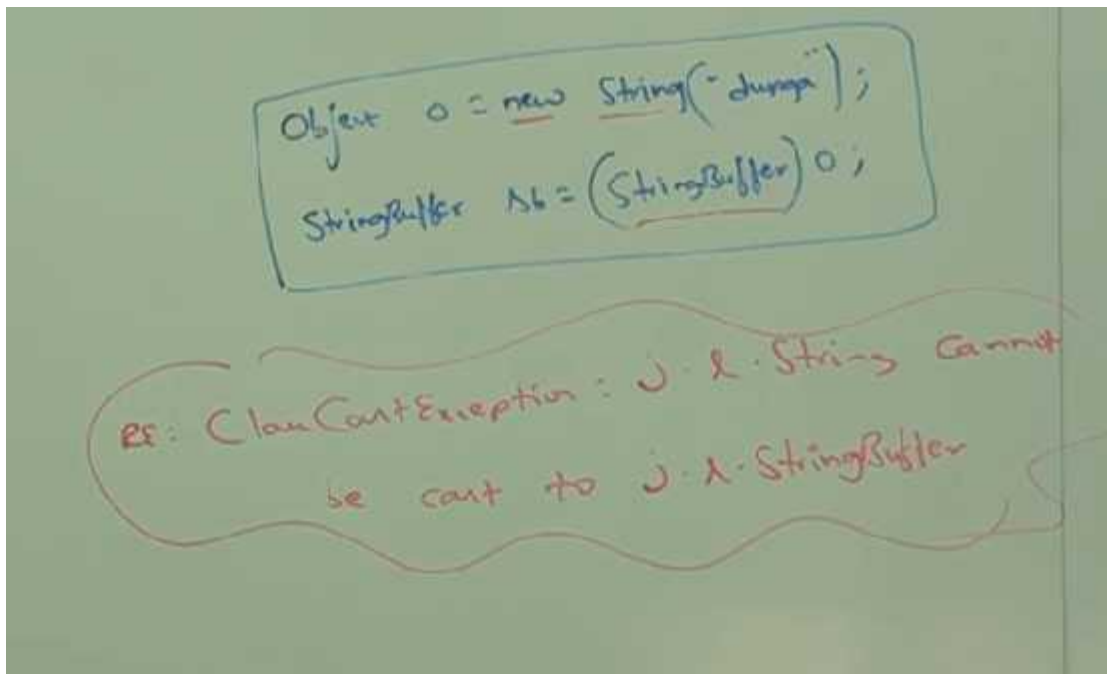 Object o = new String("durga");
StringBuffer sb = (StringBuffer) o;
RE: ClassCastException: j.l.String cannot
be cast to j.l.StringBuffer